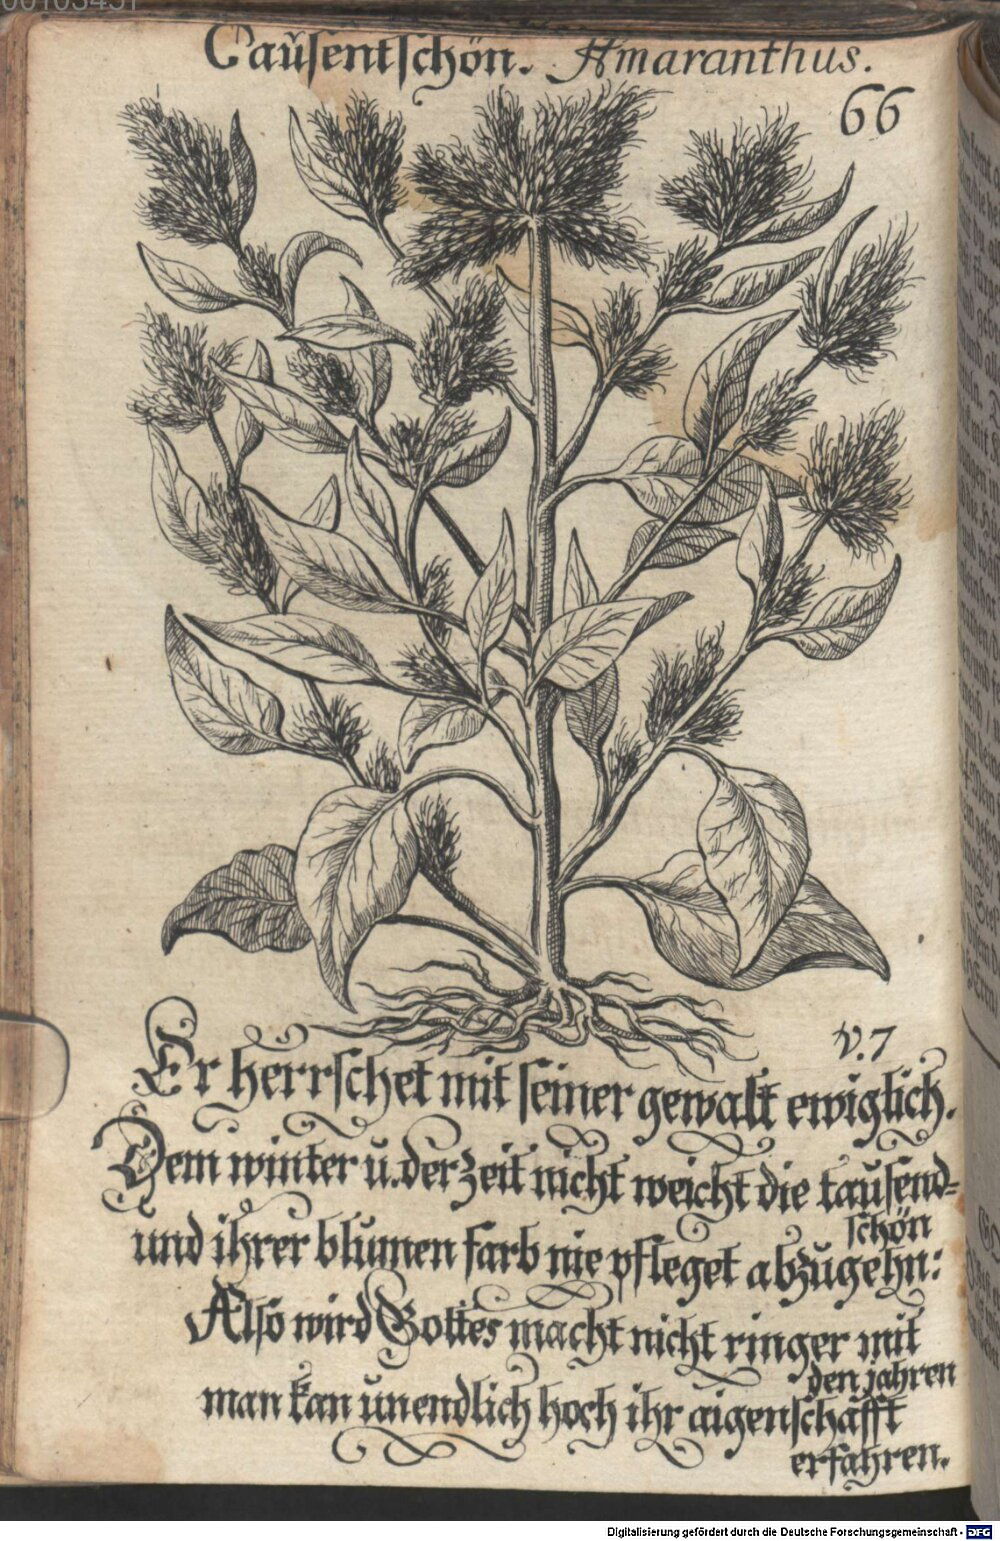 00103451
Tausentschön. Amaranthus.
66
v. 7
Er herrschet mit seiner gewalt ewiglich.
Dem winter u. der zeit nicht weicht die tausend=
schön
und ihrer blumen farb nie pfleget abzugehn:
Also wird Gottes macht nicht ringer mit
den jahren
man kan unendlich hoch ihr aigenschafft
erfahren.
Digitalisierung gefördert durch die Deutsche Forschungsgemeinschaft - DFG